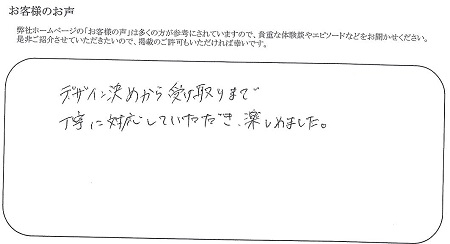 お客様のお声
弊社ホームページの「お客様の声」は多くの方が参考にされていますので、貴重な体験談やエピソードなどをお聞かせください。
是非ご紹介させていただきたいので、掲載のご許可もいただければ幸いです。
デザイン決めから受け取りまで
丁寧に対応していただき、楽しめました。